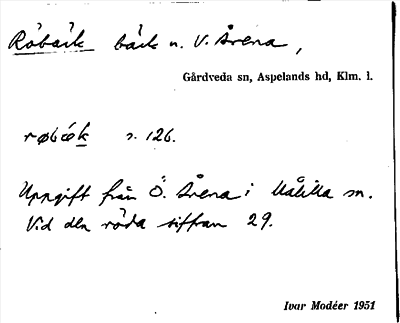 Röbäck bäck n. V. Årena,
Gårdveda sn, Aspelands hd, Klm. l.
røbæk s. 126.
Uppgift från Ö. Årena i Målilla sn.
Vid den röda siffran 29.
Ivar Modéer 1951